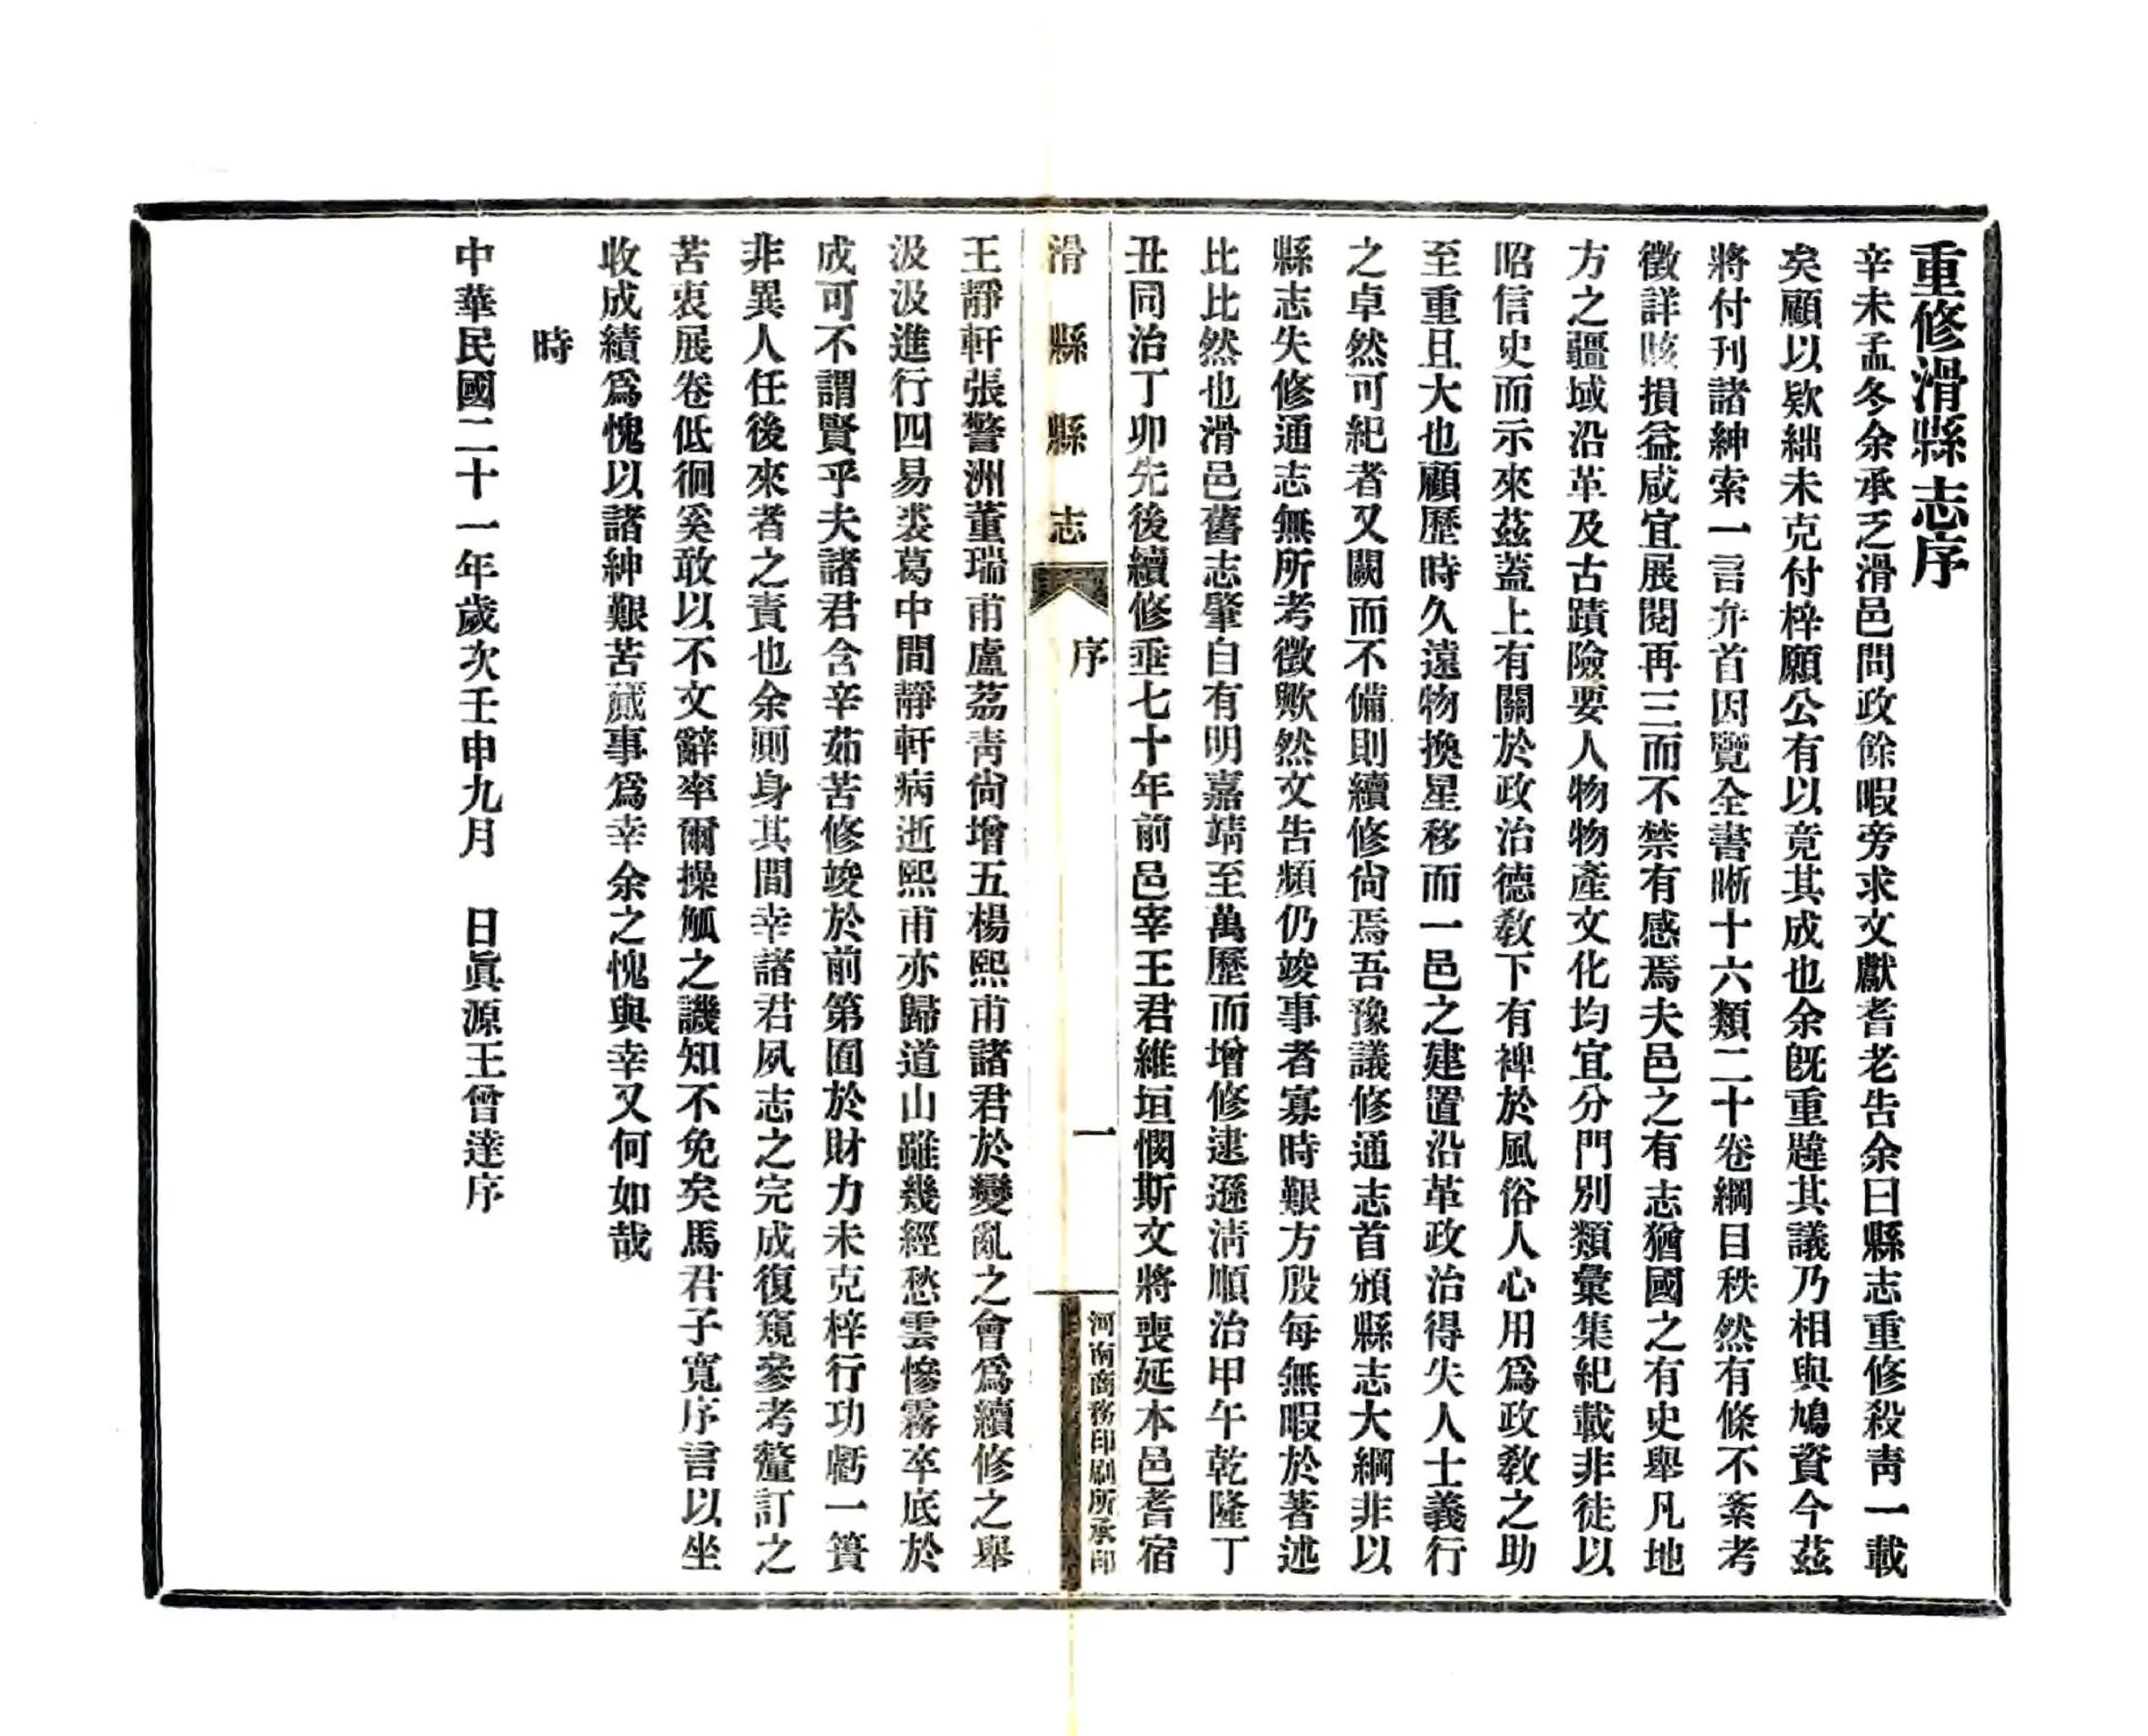 重修滑縣志序
辛未孟冬余承乏滑邑問政餘暇旁求文獻耆老告余曰縣志重修殺靑一載
矣顧以欵絀未克付梓願公有以竟其成也余旣重韙其議乃相與鳩資今茲
將付刊諸紳索一言弁首因覽全書晰十六類二十卷綱目秩然有條不紊考
徵詳賅損益咸宜展閱再三而不禁有感焉夫邑之有志猶國之有史舉凡地
方之疆域沿革及古蹟險要人物物產文化均宜分門別類彙集紀載非徒以
昭信史而示來茲蓋上有關於政治德敎下有裨於風俗人心用爲政敎之助
至重且大也顧歷時久遠物換星移而一邑之建置沿革政治得失人士義行
之卓然可紀者又闕而不備則續修尙焉吾豫議修通志首頒縣志大綱非以
縣志失修通志無所考徵歟然文告頻仍竣事者寡時艱方殷每無暇於著述
比比然也滑邑舊志肇自有明嘉靖至萬歷而增修逮遜淸順治甲午乾隆丁
丑同治丁卯先後續修垂七十年前邑宰王君維垣憫斯文將喪延本邑耆宿
滑縣縣志
序
一
河南商務印刷所承印
王靜軒張警洲董瑞甫盧荔靑尙增五楊熙甫諸君於變亂之會爲續修之舉
汲汲進行四易裘葛中間靜軒病逝熙甫亦歸道山雖幾經愁雲慘霧卒底於
成可不謂賢乎夫諸君含辛茹苦修竣於前第囿於財力未克梓行功虧一簣
非異人任後來者之責也余則身其間幸諸君夙志之完成復窺參考釐訂之
苦衷展卷低徊奚敢以不文辭率爾操觚之譏知不免矣馬君子寬序言以坐
收成績爲愧以諸紳艱苦蕆事爲幸余之愧與幸又何如哉
時
中華民國二十一年歲次壬申九月　日眞源王曾達序